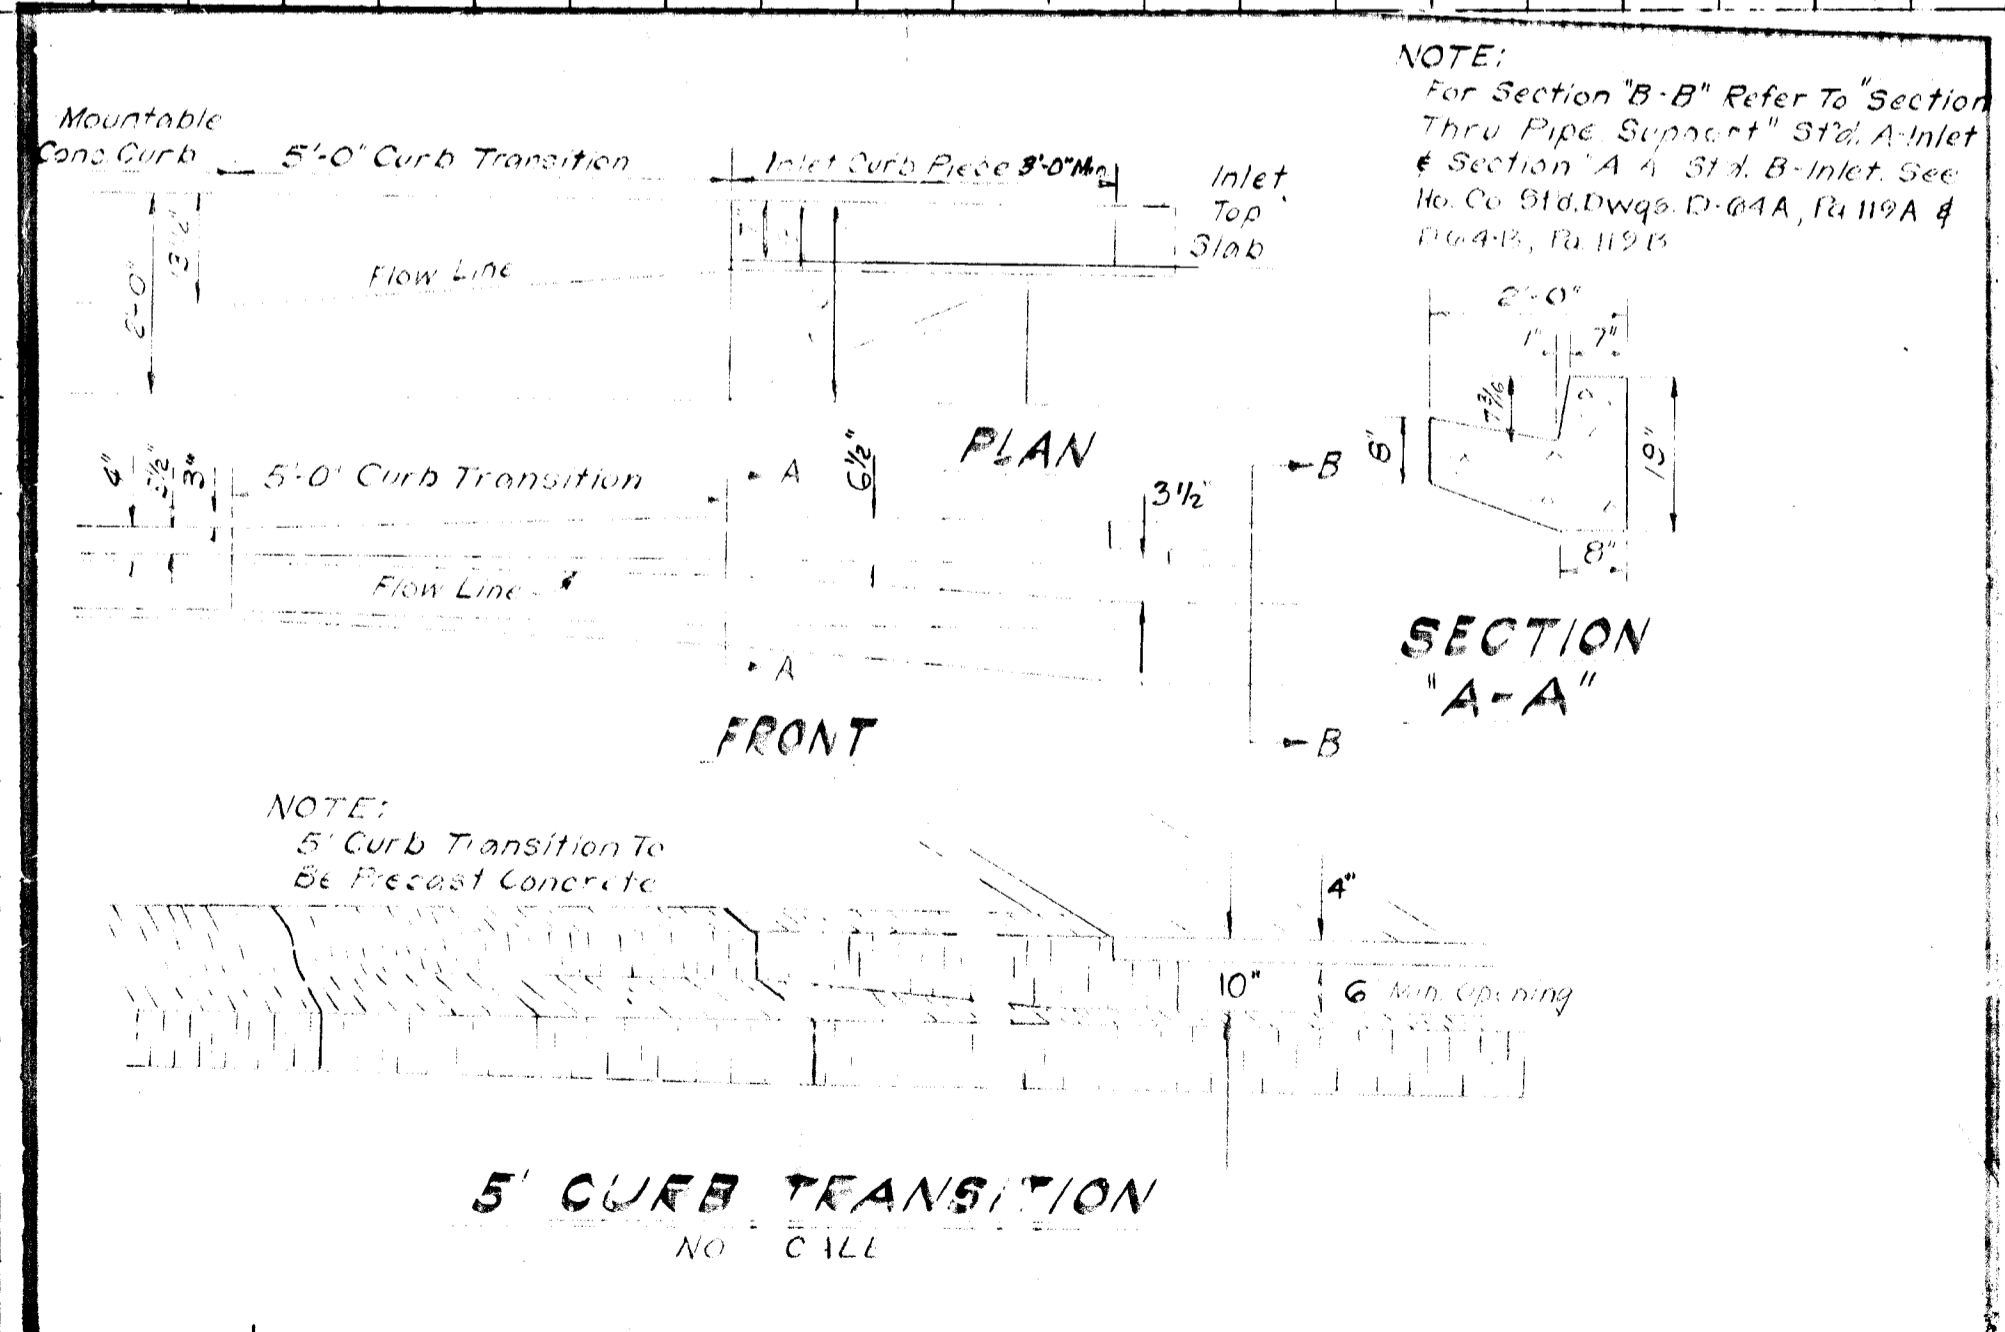 NOTE:
For Section "B-B" Refer To "Section
Thru Pipe Support" St'd. A-Inlet
& Section "A A" St'd. B-Inlet. See
Ho. Co St'd. Dwgs. D-64A, Pa 119A &
D64-B, Pa. 119B
Mountable
Conc. Curb
5'-0" Curb Transition
Inlet Curb Piece 3'-0" Min
Inlet
Top
Slab
2'-0"
Flow Line
PLAN
2'-0"
1"
7"
7 3/16
8"
19"
8"
SECTION
"A-A"
4"
3"
5'-0" Curb Transition
A
6 1/2"
3 1/2"
B
Flow Line
A
B
FRONT
NOTE:
5' Curb Transition To
Be Precast Concrete
4"
10"
6 Min. Opening
5' CURB TRANSITION
NO